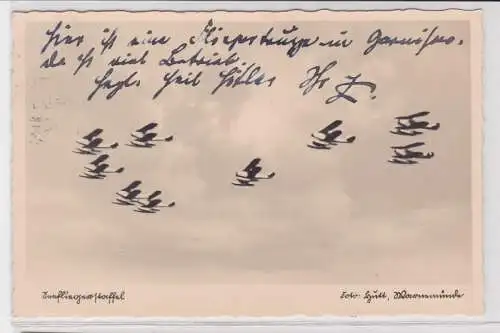 Hier ist eine Fliegertruppe in Garnison,
da ist viel Betrieb.
Herzl. Heil Hitler Ihr
Seefliegerstaffel
Foto: Hutt, Warnemünde